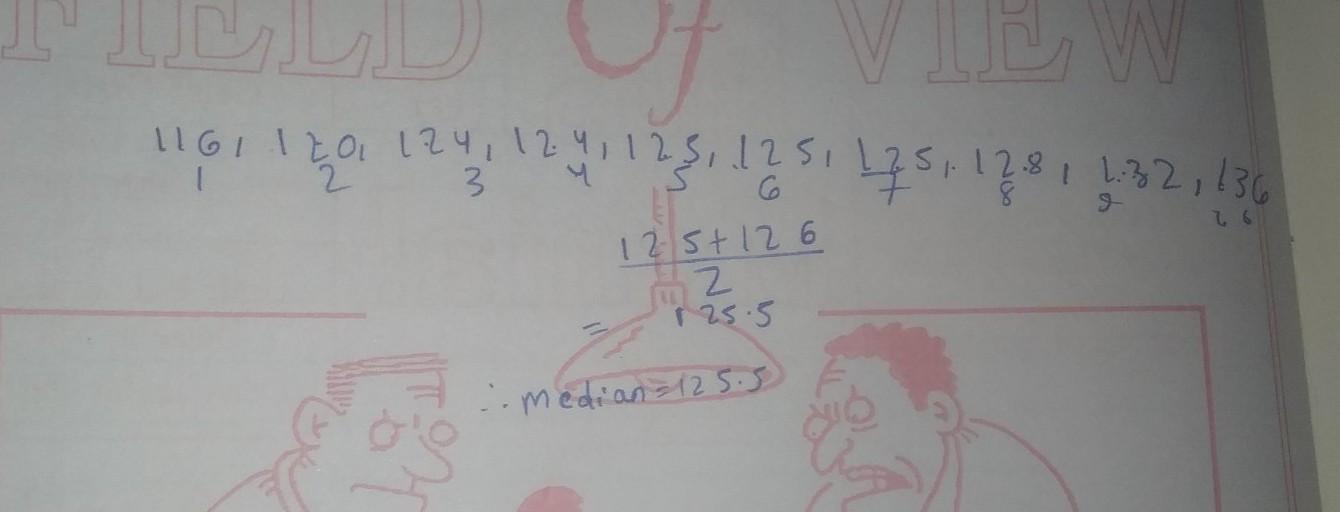 FIELD Of VIEW
116, 120, 124, 124, 125, 125, 125, 128, 132, 136
1 2 3 4 5 6 7 8 9
125+126
2
= 125.5
∴ median = 125.5